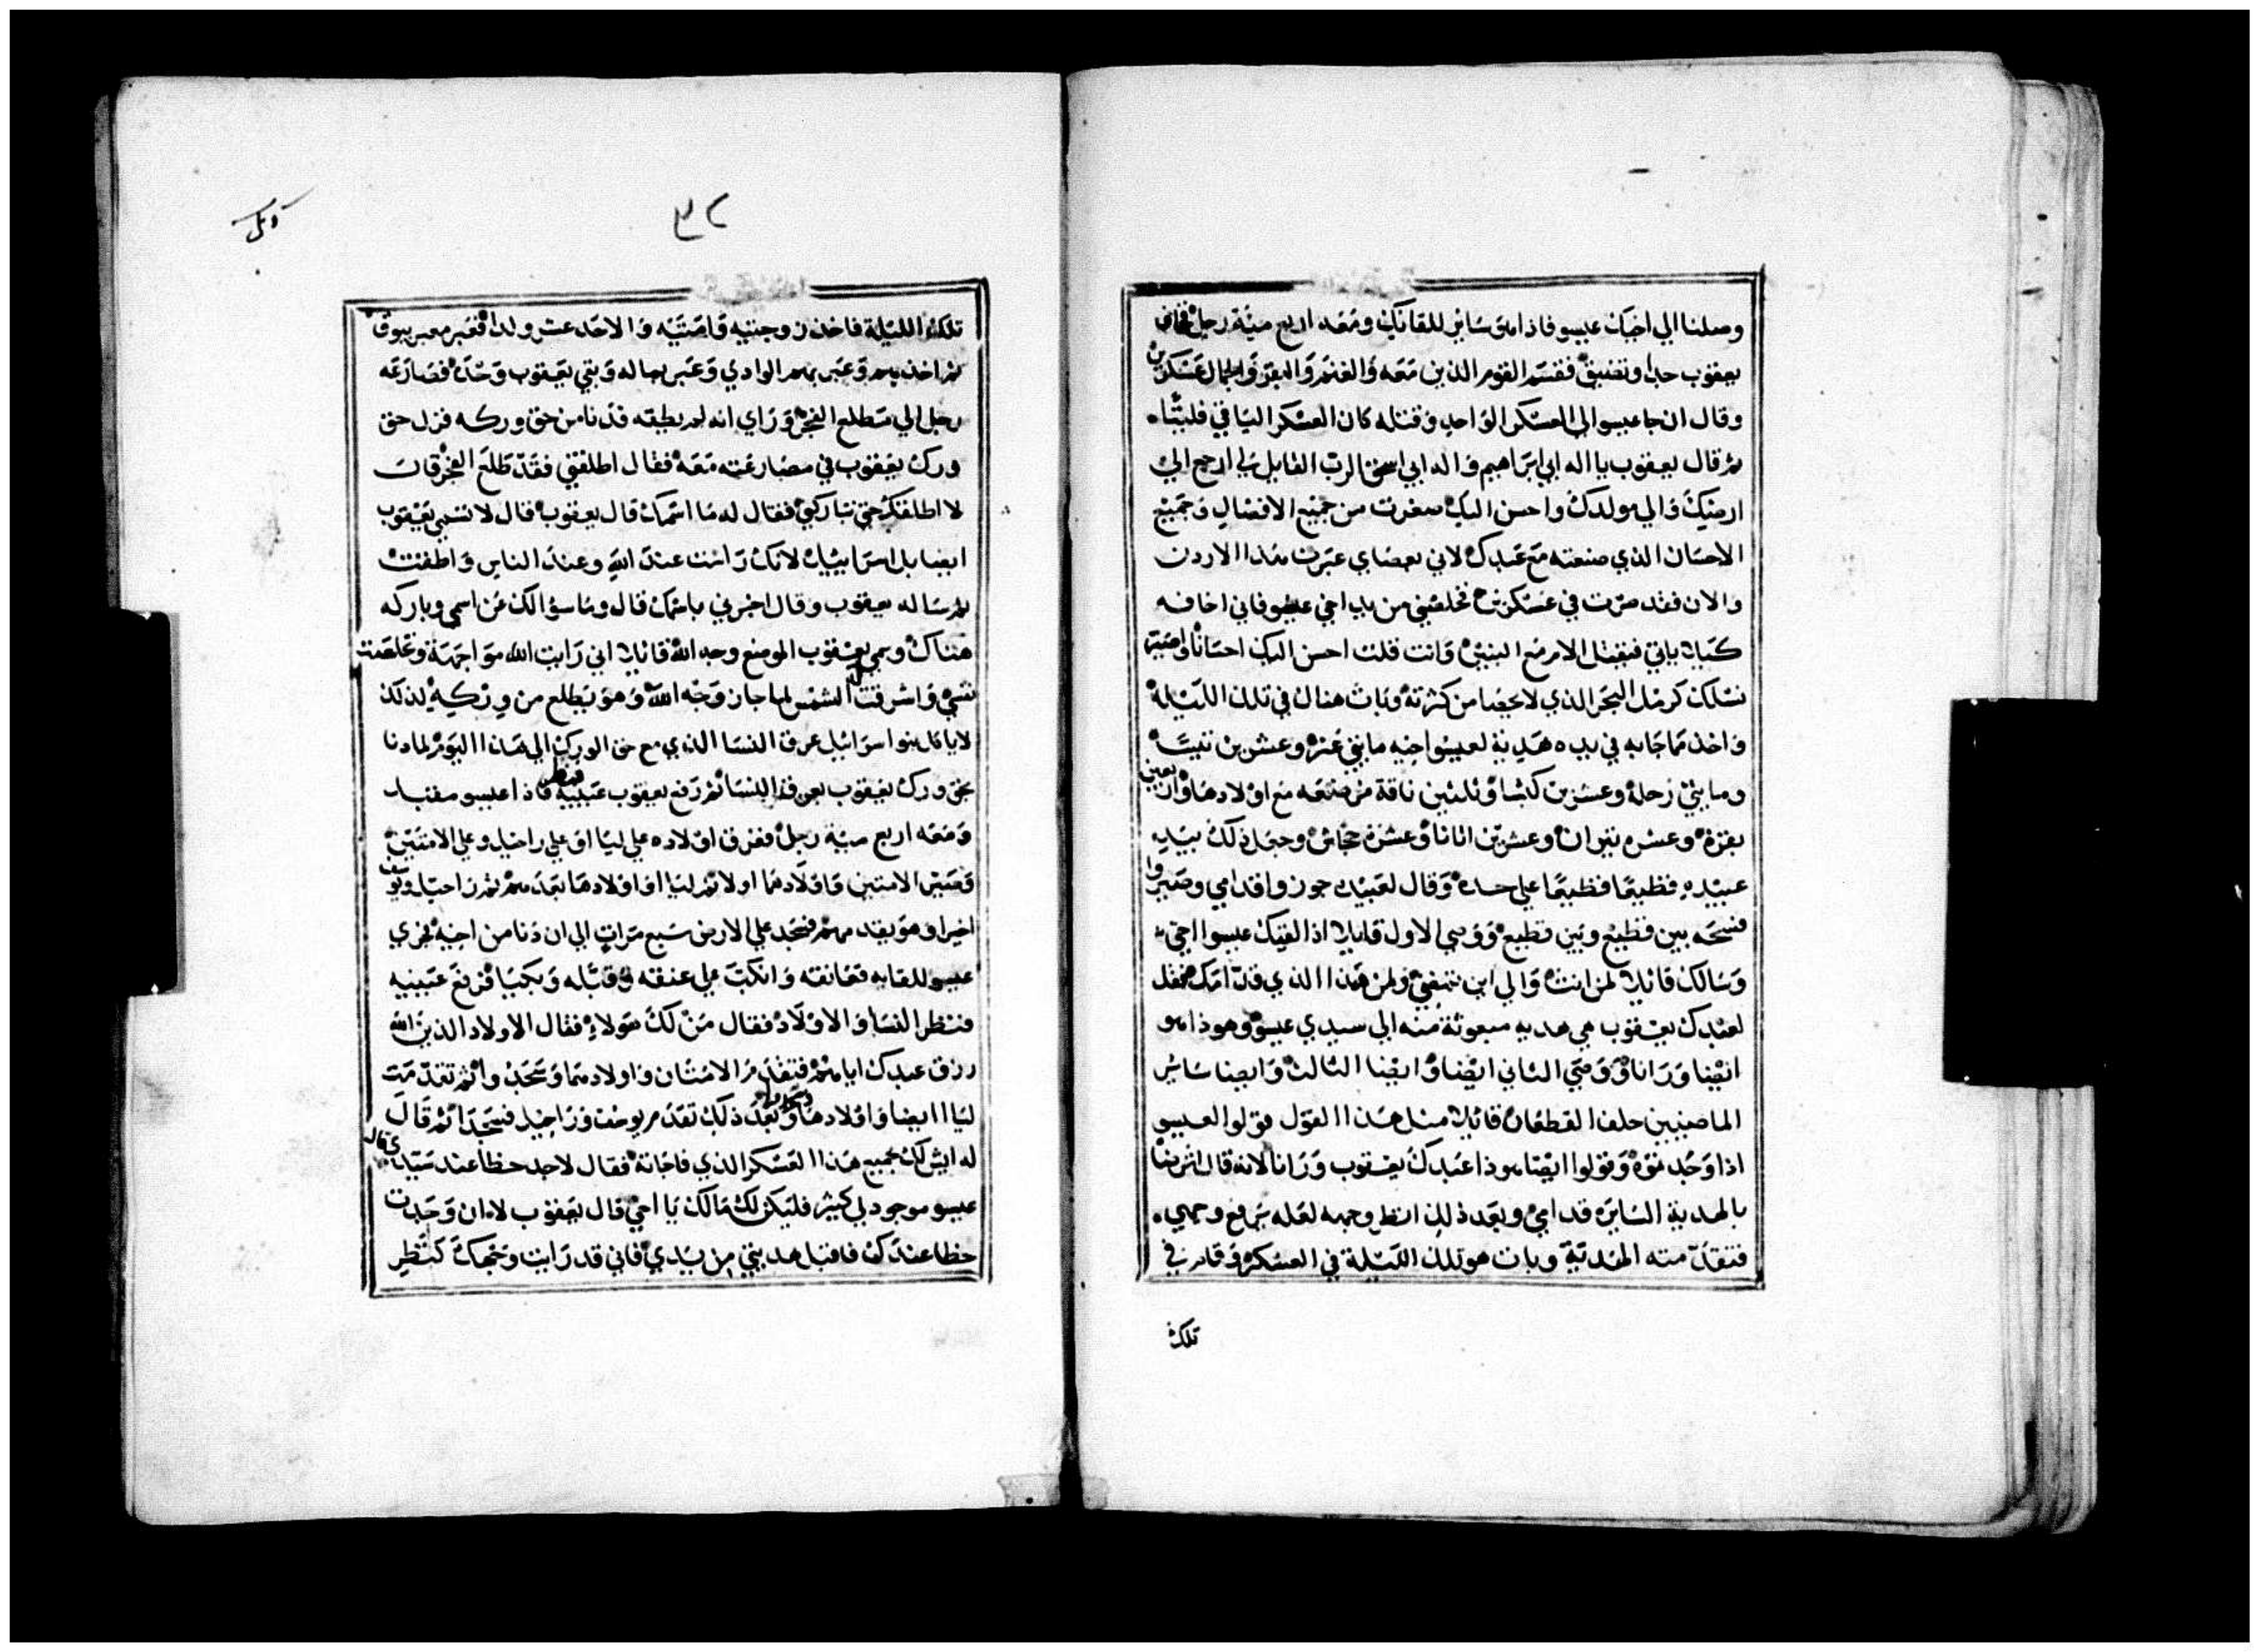 وصلنا الي اخيك عيسو فاذا هو ساير للقايك ومعه اربع مية رجل فخاف
يعقوب جدا وتضيق فقسم القوم الذين معه والغنم والبقر والجمال عسكرين
وقال ان جا عيسو الي العسكر الواحد وقتله كان العسكر الباقي فلتبا
ثم قال يعقوب يا اله ابي ابراهيم واله ابي اسحق الرب القايل لي ارجع الي
ارضك والي مولدك واحسن اليك صغرت من جميع الافضال وجميع
الاحسان الذي صنعته مع عبدك لاني بعصاي عبرت هذا الاردن
والان فقد صرت في عسكرين فخلصني من يد اخي عيسو فاني اخافه
كيلا ياتي فيقتل الام مع البنين وانت قلت احسن اليك احسانا واصير
نسلك كرمل البحر الذي لا يحصا من كثرته وبات هناك في تلك الليلة
واخذ مما جابه في يده هدية لعيسو اخيه مايتي عنز وعشرين تيسا
ومايتي رحلة وعشرين كبشا وثلثين ناقة مرضعه مع اولادها واربعين
بقرة وعشرة ثيران وعشرين اتانا وعشرة جحاش وجعل ذلك بيد
عبيده قطيعا قطيعا علي حدة وقال لعبيده جوزوا قدامي وصيروا
فسحه بين قطيع وبين قطيع ووصي الاول قايلا اذا لقيك عيسو اخي
وسالك قايلا لمن انت والي اين تمضي ولمن هذا الذي قدامك فقل
لعبدك يعقوب هي هديه مبعوثة منه الي سيدي عيسو وهوذا هو
ايضا ورانا ووصي الثاني ايضا وايضا الثالث وايضا ساير
الماضيين خلف القطعان قايلا مثل هذا القول قولوا لعيسو
اذا وجدتموه وقولوا ايضا هوذا عبدك يعقوب ورانا لانه قال
بالهدية السايرة قدامي وبعد ذلك انظر وجهه لعله يرفع وجهي
فتقدمته الهدية وبات هو تلك الليلة في العسكر وقام في
تلك
٣٢
تلك الليلة فاخذ زوجتيه وامتيه والاحد عشر ولدا فعبر معبر يبوق
ثم اخذهم وعبر بهم الوادي وعبر بماله وبقي يعقوب وحده فصارعه
رجل الي مطلع الفجر وراي انه لم يطيقه فدنا من حق وركه فزل حق
ورك يعقوب في مصارعته معه فقال اطلقني فقد طلع الفجر قال
لا اطلقك حتي تباركني فقال له ما اسمك قال يعقوب قال لا تسمي يعقوب
ايضا بل اسراييل لانك رانت عند الله وعند الناس واطقت
ثم ساله يعقوب وقال اخبرني باسمك قال وما سوالك عن اسمي وباركه
هناك وسمي يعقوب الموضع وجه الله قايلا اني رايت الله مواجهة وتخلصت
نفسي واشرقت له الشمس لما جاز وجه الله وهو يظلع من وركيه لذلك
لا ياكل بنوا اسراييل عرق النسا الذي مع حق الورك الي هذا اليوم لما دنا
بحق ورك يعقوب بعرق النسا ثم رفع يعقوب عينيه فنظر فاذا عيسو مقبل
ومعه اربع مية رجل ففرق اولاده علي ليا او علي راحيل وعلي الامتين
وصير الامتين واولادهما اولا ثم ليا او اولادها بعدهم ثم راحيل ويوسف
اخيرا وهو يقدمهم فسجد علي الارض سبع مرات الي ان دنا من اخيه فجري
عيسو للقايه فعانقه وانكب علي عنقه وقبله وبكيا فرفع عينيه
فنظر النسا والاولاد فقال من لك هولاء فقال الاولاد الذين الله
رزق عبدك اياهم فتقدم الامتان واولادهما وسجدوا ثم تقدمت
ليا ايضا واولادها وسجدوا وبعد ذلك تقدم يوسف وراحيل فسجدا ثم قال
له ايش لك جميع هذا العسكر الذي فاجانه فقال لاجد حظا عند سيدي قال
عيسو موجود لي كثير فليكن لك مالك يا اخي قال يعقوب لا ان وجدت
حظا عندك فاقبل هديتي من يدي فاني قد رايت وجهك كنظر